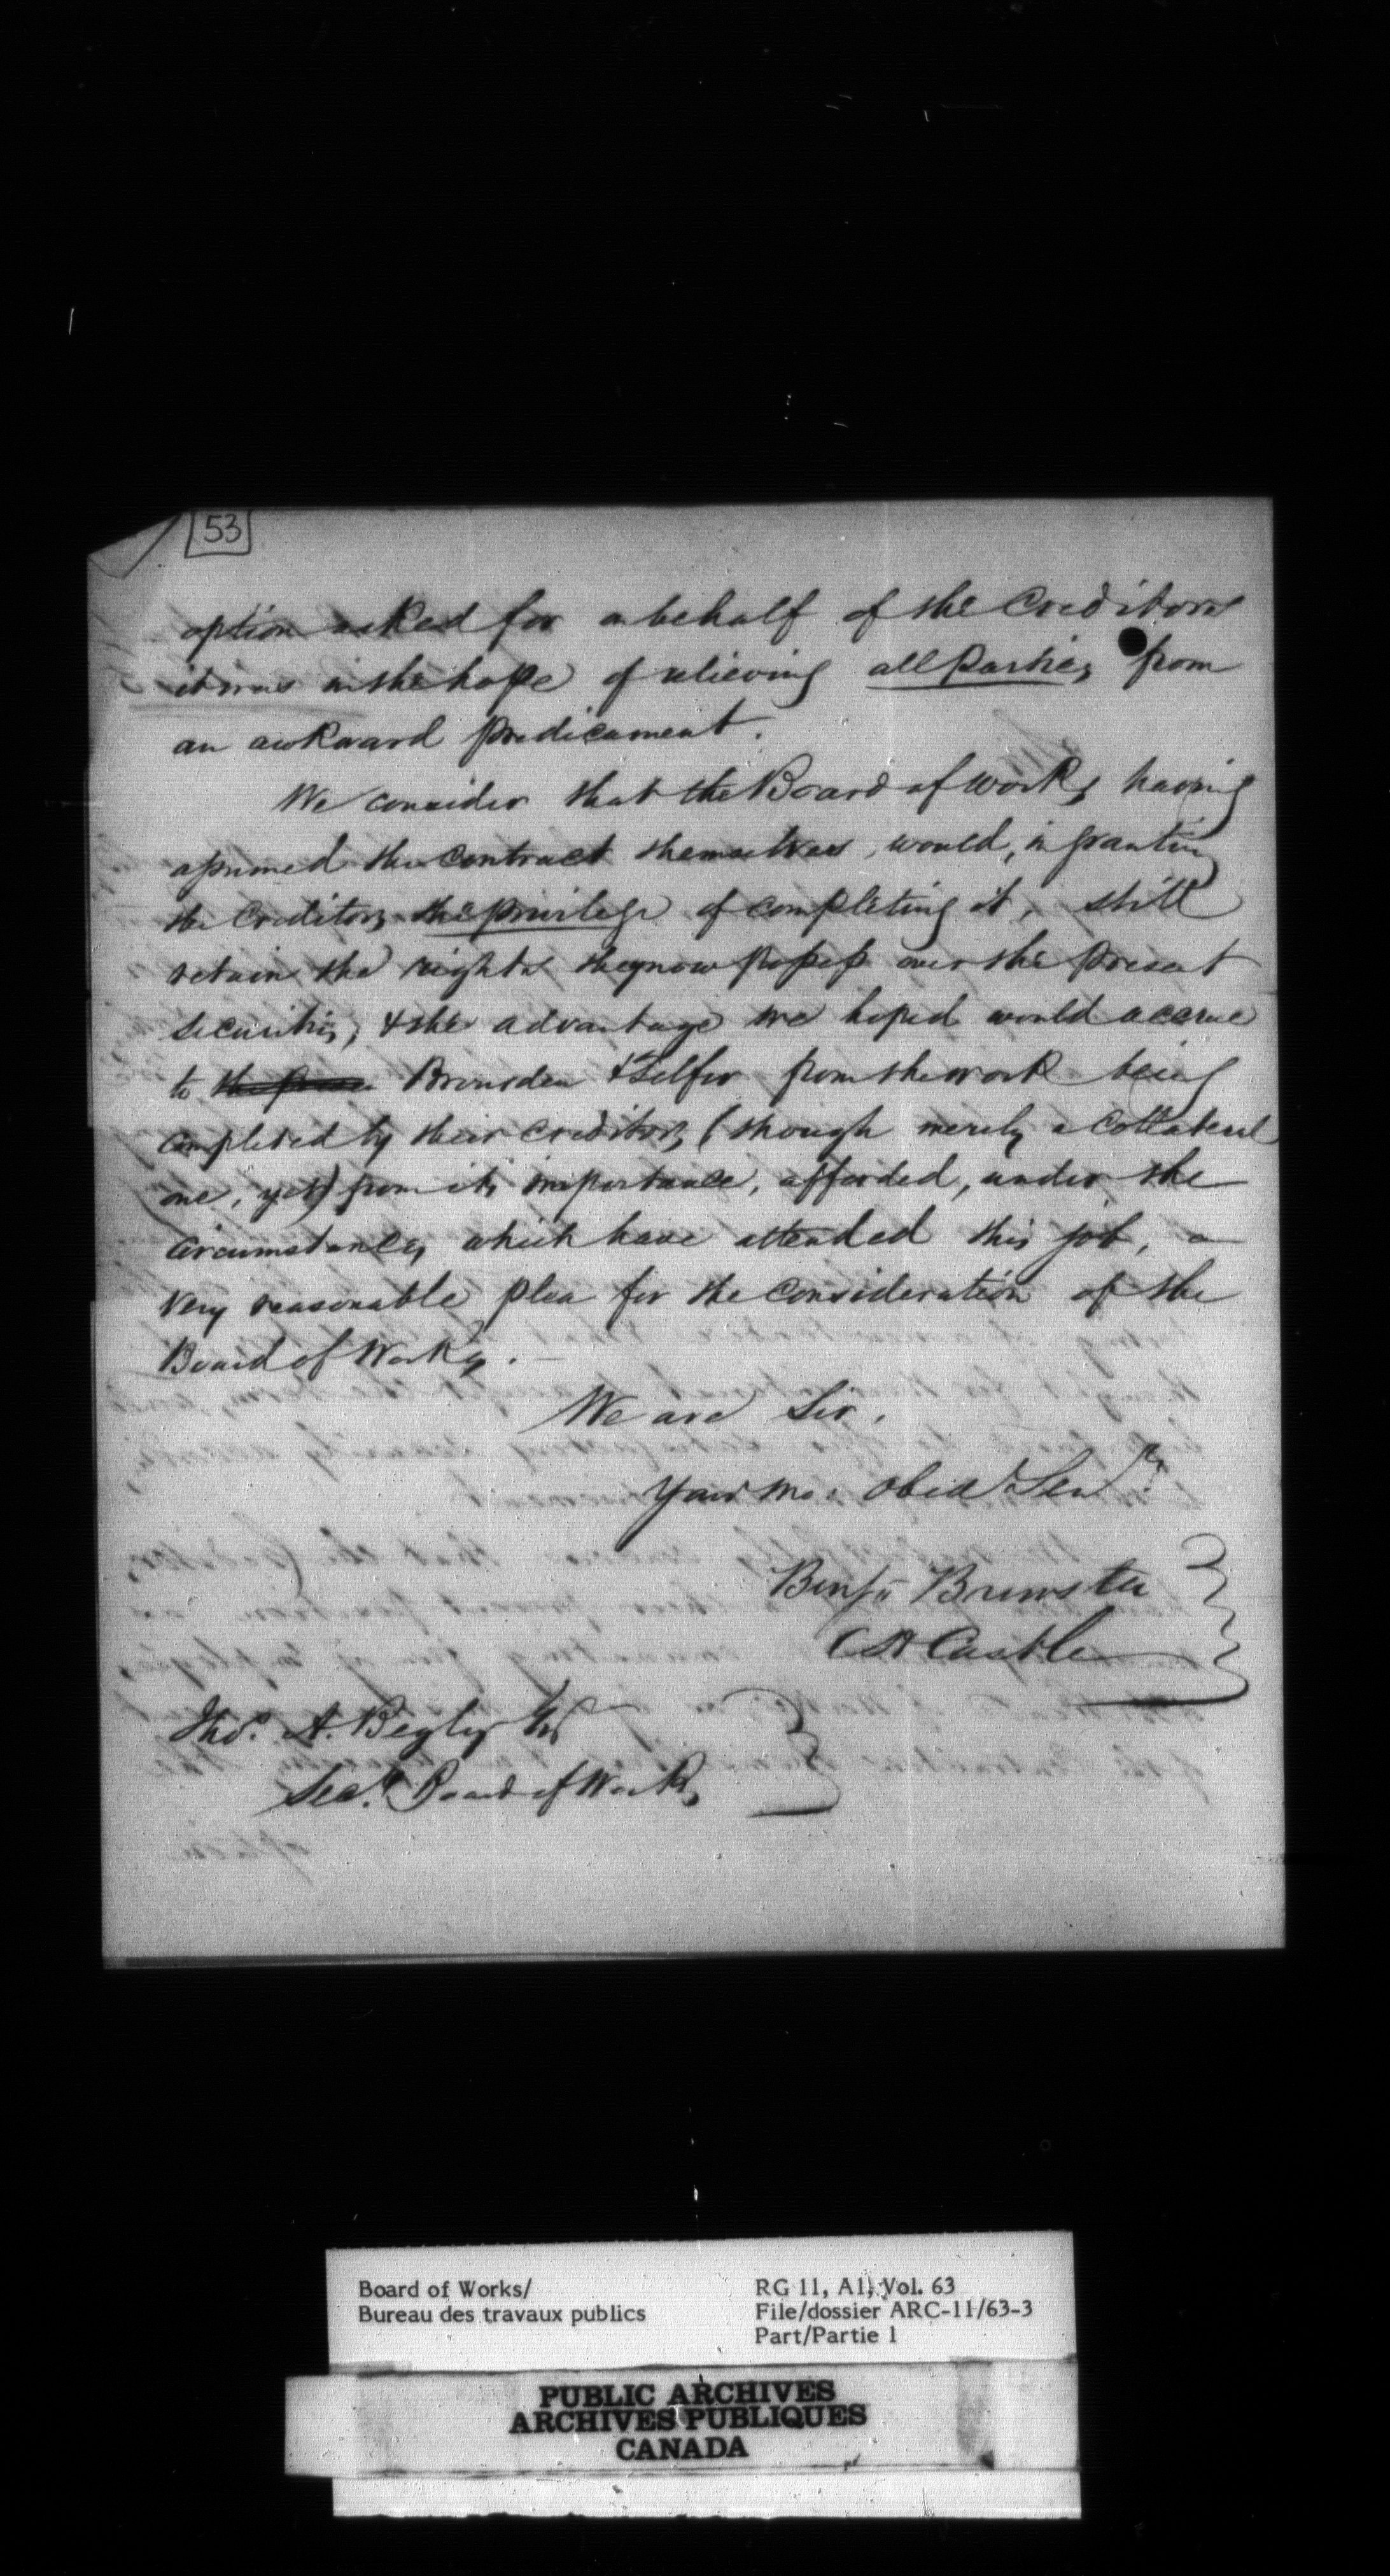 53
option asked for on behalf of the Creditors
it was in the hope of relieving all Parties from
an awkward predicament.
We consider that the Board of Works having
assumed the contract themselves, would, in granting
the Creditors the privilege of completing it, still
retain the rights they now possess over the present
securities, & the advantage we hoped would accrue
to Brunsden & Selfer from the work being
completed by their creditors, (though merely a Collateral
one, yet) from its importance, afforded, under the
circumstances which have attended this job, a
very reasonable plea for the consideration of the
Board of Works. —
We are Sir.
Your mo. Obed Servts.
Benjn Brewster
C A Castle
Thos. A. Begly Esq
Secy. Board of Works
Board of Works/
Bureau des travaux publics
RG 11, A1, Vol. 63
File/dossier ARC-11/63-3
Part/Partie 1
PUBLIC ARCHIVES
ARCHIVES PUBLIQUES
CANADA